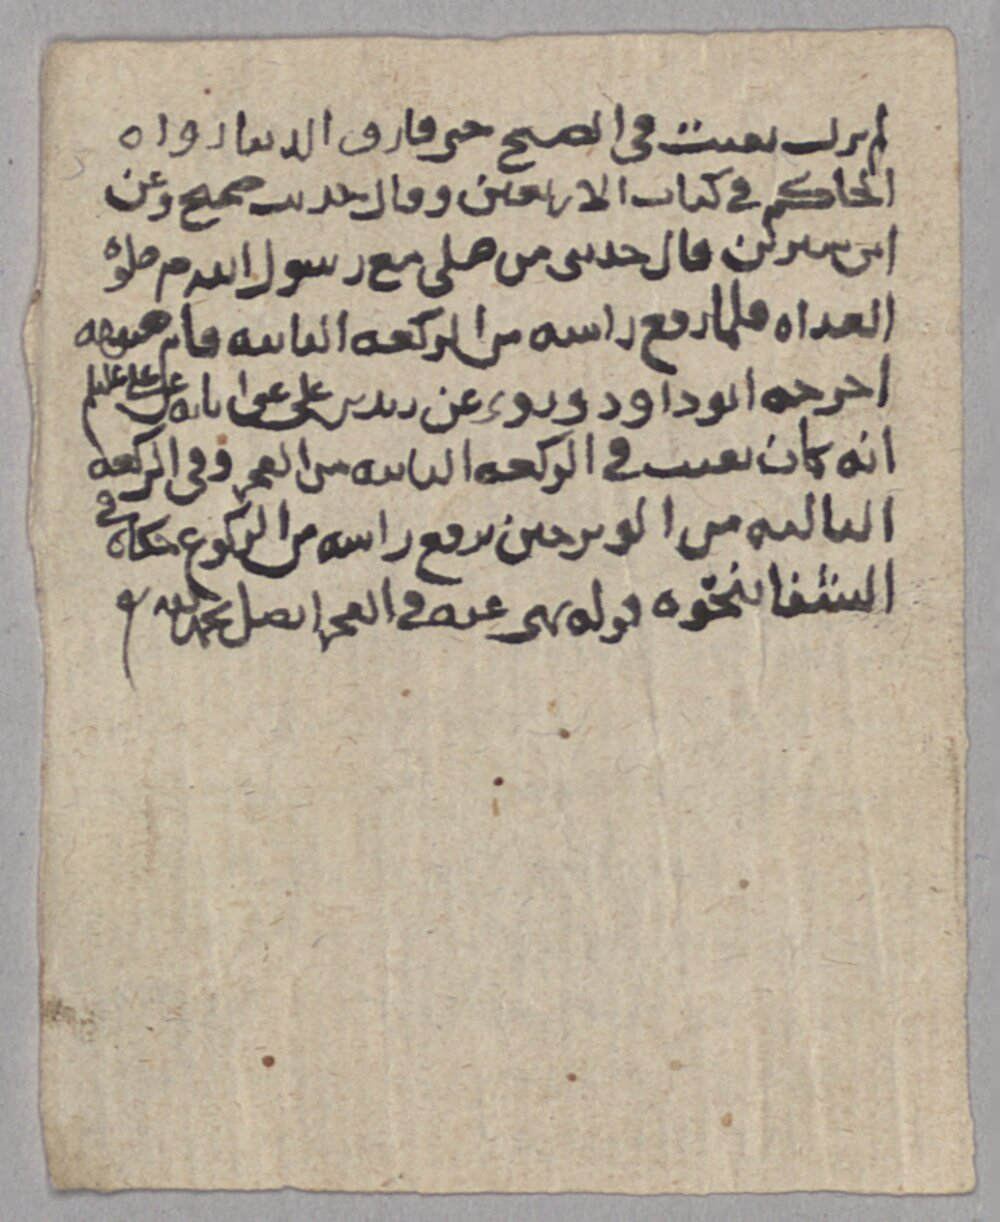 لم يزل يقنت في الصبح حتى فارق الدنيا رواه
الحاكم في كتاب الاربعين وقال حديث صحيح وعن
ابن سيرين قال حدثني من صلى مع رسول الله صلوة
الغداه فلما رفع راسه من الركعه الثانيه قام هنيهه
اخرجه ابو داود وروي عن زيد بن علي عن ابائه عن علي عليلم
انه كان يقنت في الركعه الثانيه من الفجر وفي الركعه
الثالثه من الوتر حين يرفع راسه من الركوع حكاه في
الشفا بنحوه قوله نهى عنه في الفجر اتصل بحمدالله